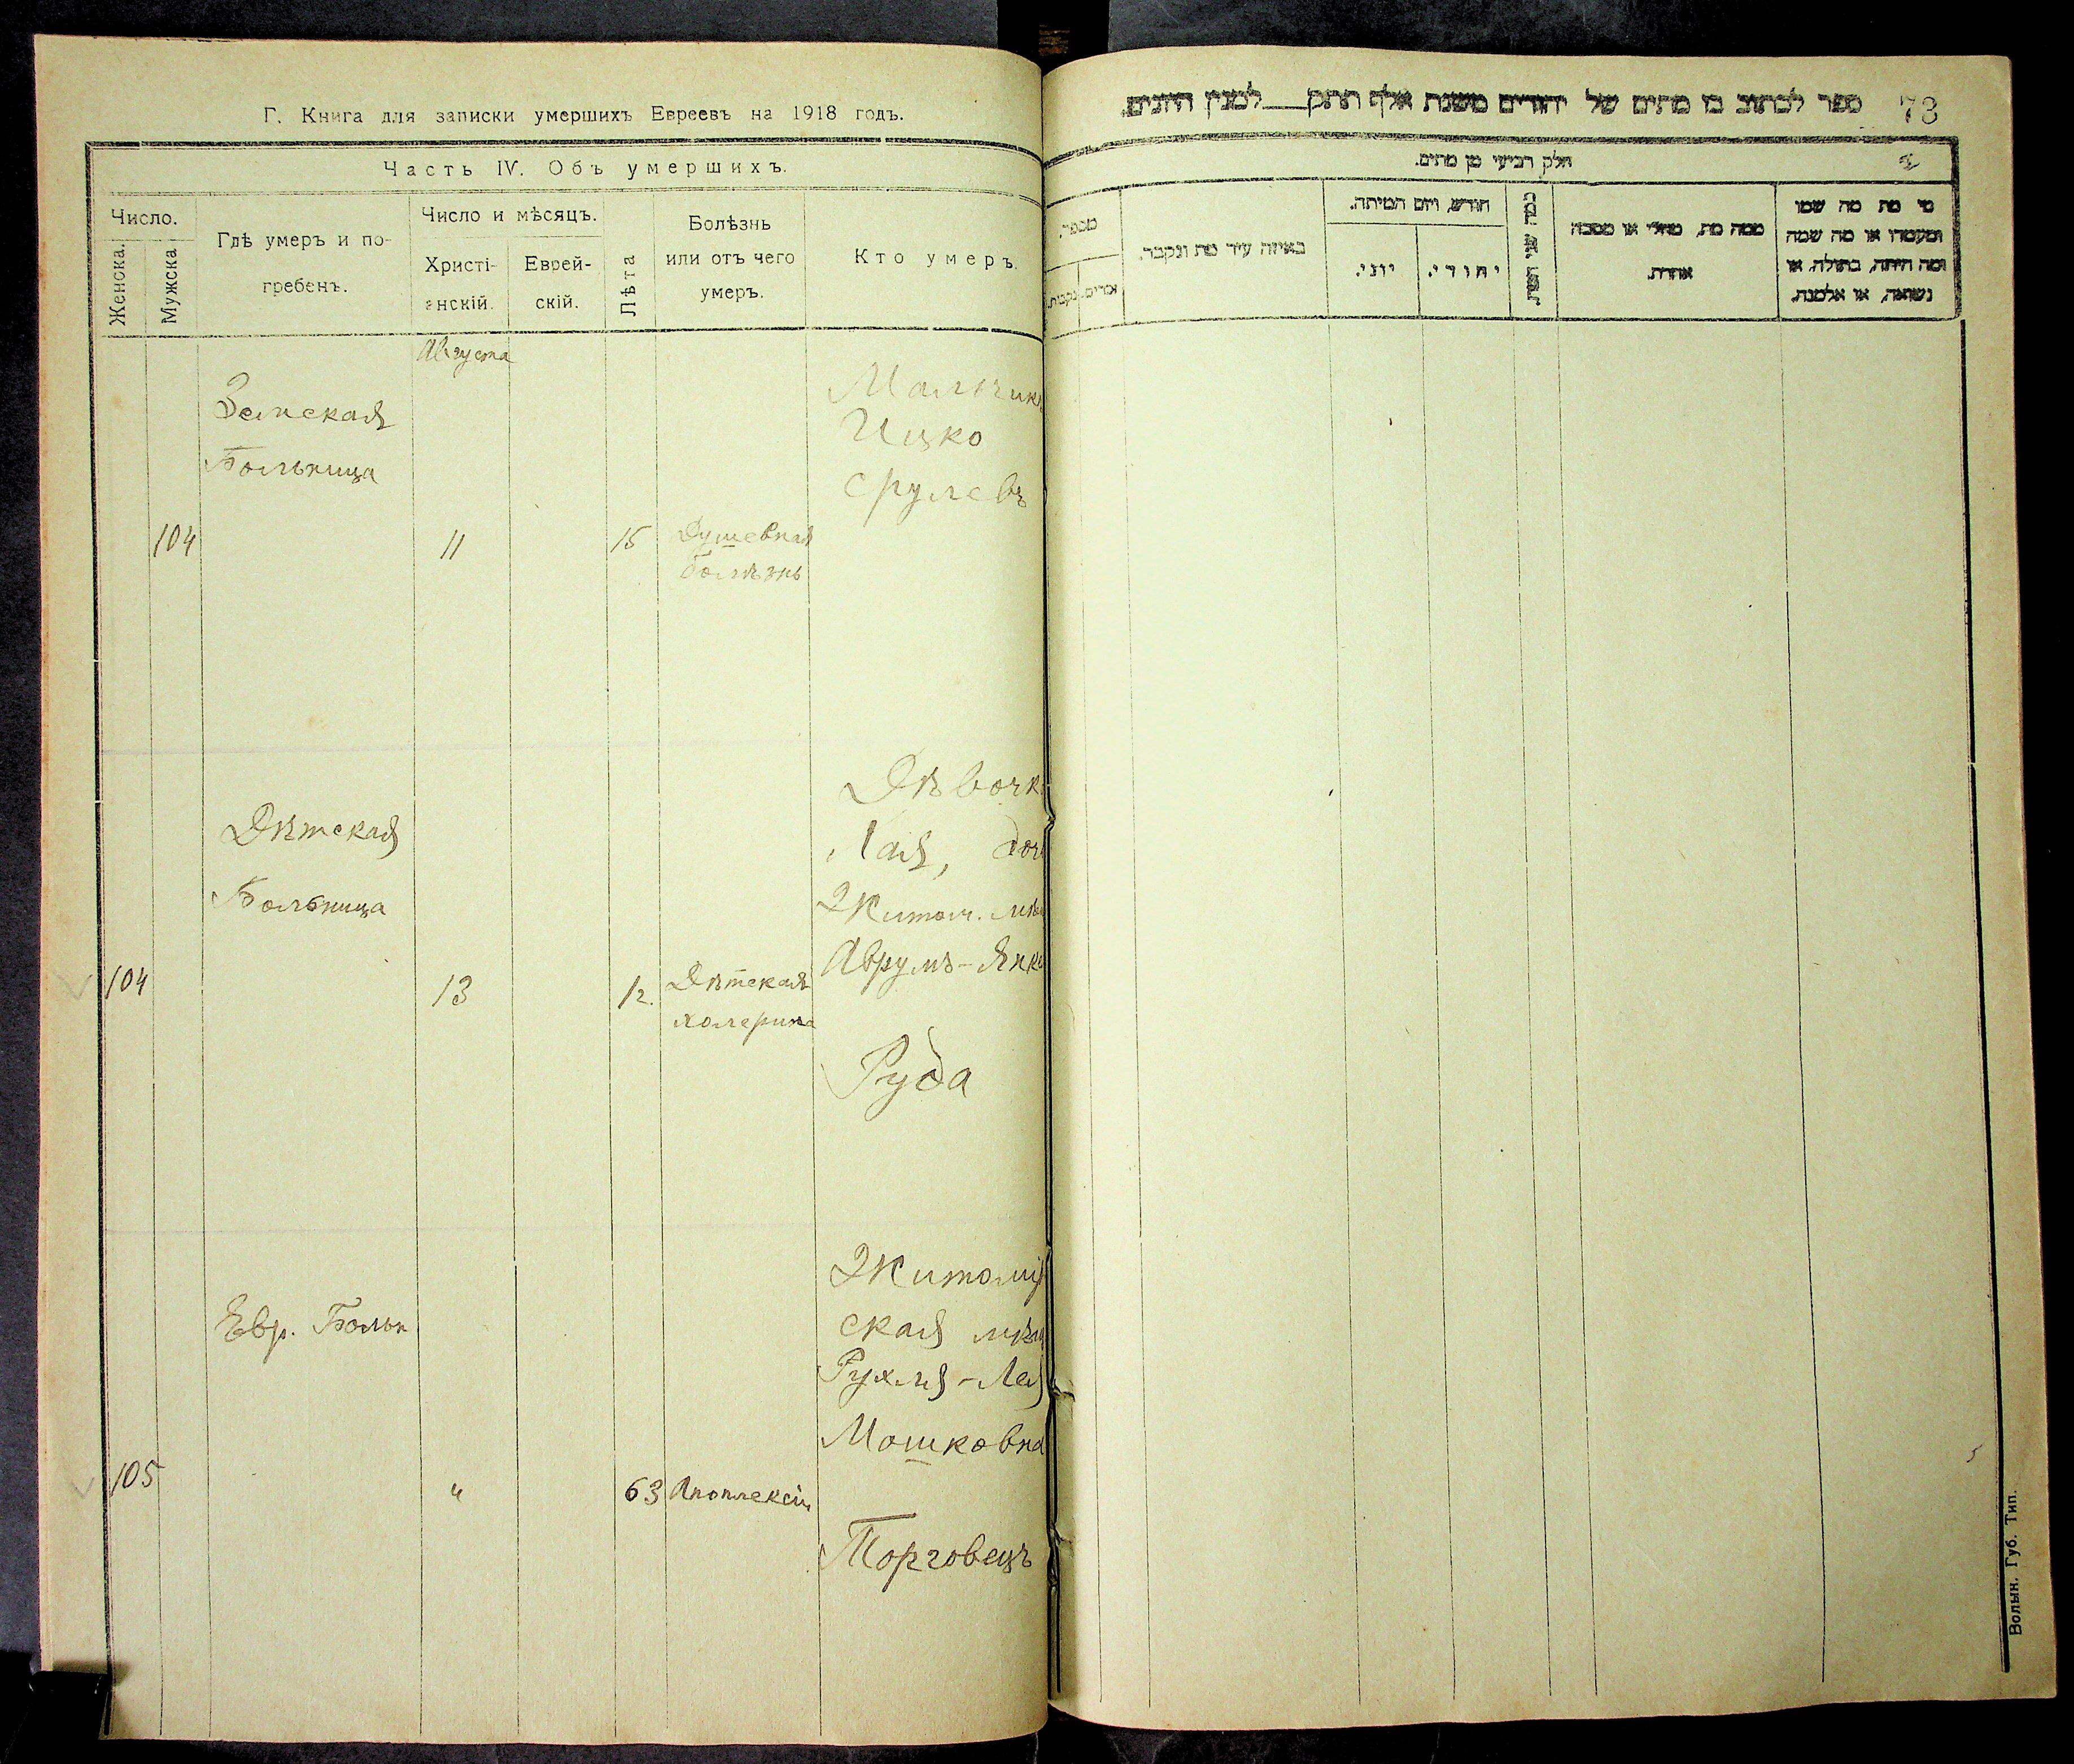 Г. Книга для записки умершихъ Евреевъ на 1918 годъ.
Часть IV. Объ умершихъ.
Число.
Женска.
Мужска
Гдѣ умеръ и по-
гребенъ.
Число и мѣсяцъ.
Христі-
анскій.
Еврей-
скій.
Лѣта
Болѣзнь
или отъ чего
умеръ.
Кто умеръ.
Августа
Земская
Больница
104
11
15
Душевная
болѣзнь
Мальчикъ
Ицко
Срулевъ
Дѣтская
Больница
104
13
12.
Дѣтская
холерина
Дѣвочк
Лая, доч
Житом. мѣщ
Аврумъ-Янке
Руда
Евр. Больн
105
"
63
Апоплексія
Житомір
ская мѣщ
Рухля-Лея
Мошковна
Торговецъ
ספר לכתוב בו מתים של יהודים משנת אלף תתק לםנין היונים.
73
חלק רביעי מן מתים.
מספר.
זכרים.
נקבות.
באיזה עיר מת ונקבר.
חודש, ויום המיתה.
יוני.
יהודי.
כמה שני
ממה מת, מחלי או מסבה
אחרת.
מי מת מה שמו
ומעמדו או מה שמה
ומה היתה, בתולה, או
נשואה, או אלמנה.
Волын. Губ. Тип.